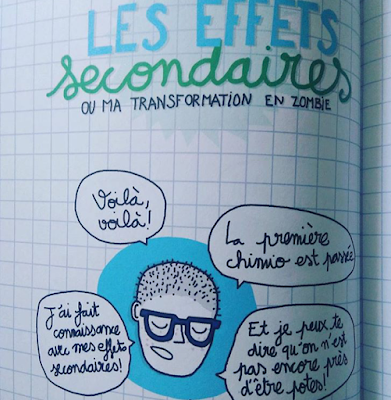 LES EFFETS
secondaires
OU MA TRANSFORMATION EN ZOMBIE
Voilà,
voilà!
La première
chimio est passée
J'ai fait
connaissance
avec mes effets
secondaires!
Et je peux te
dire qu'on n'est
pas encore près
d'être potes!